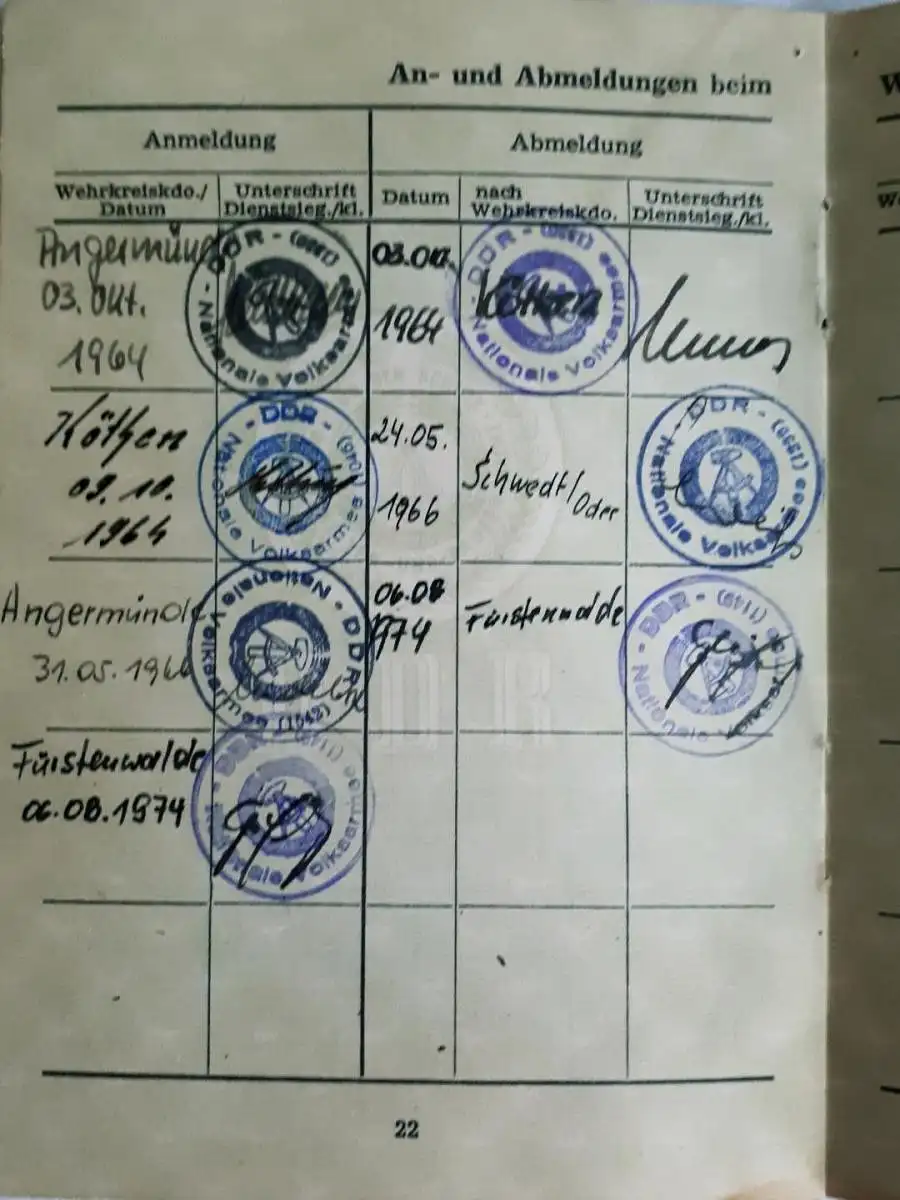 An- und Abmeldungen beim
Anmeldung
Abmeldung
Wehrkreiskdo./
Datum
Unterschrift
Dienstsieg./kl.
Datum
nach
Wehrkreiskdo.
Unterschrift
Dienstsieg./kl.
Angermünde
03. Okt.
1964
- DDR -
Nationale Volksarmee
03. Okt.
1964
Köthen
- DDR -
Nationale Volksarmee
Köthen
09. 10.
1964
- DDR -
Nationale Volksarmee
24.05.
1966
Schwedt/Oder
- DDR -
Nationale Volksarmee
Angermünde
31.05.1966
- DDR -
Nationale Volksarmee (1542)
06.08
1974
Fürstenwalde
- DDR -
Nationale Volksarmee
Fürstenwalde
06.08.1974
DDR
Nationale Volksarmee
DDR
22